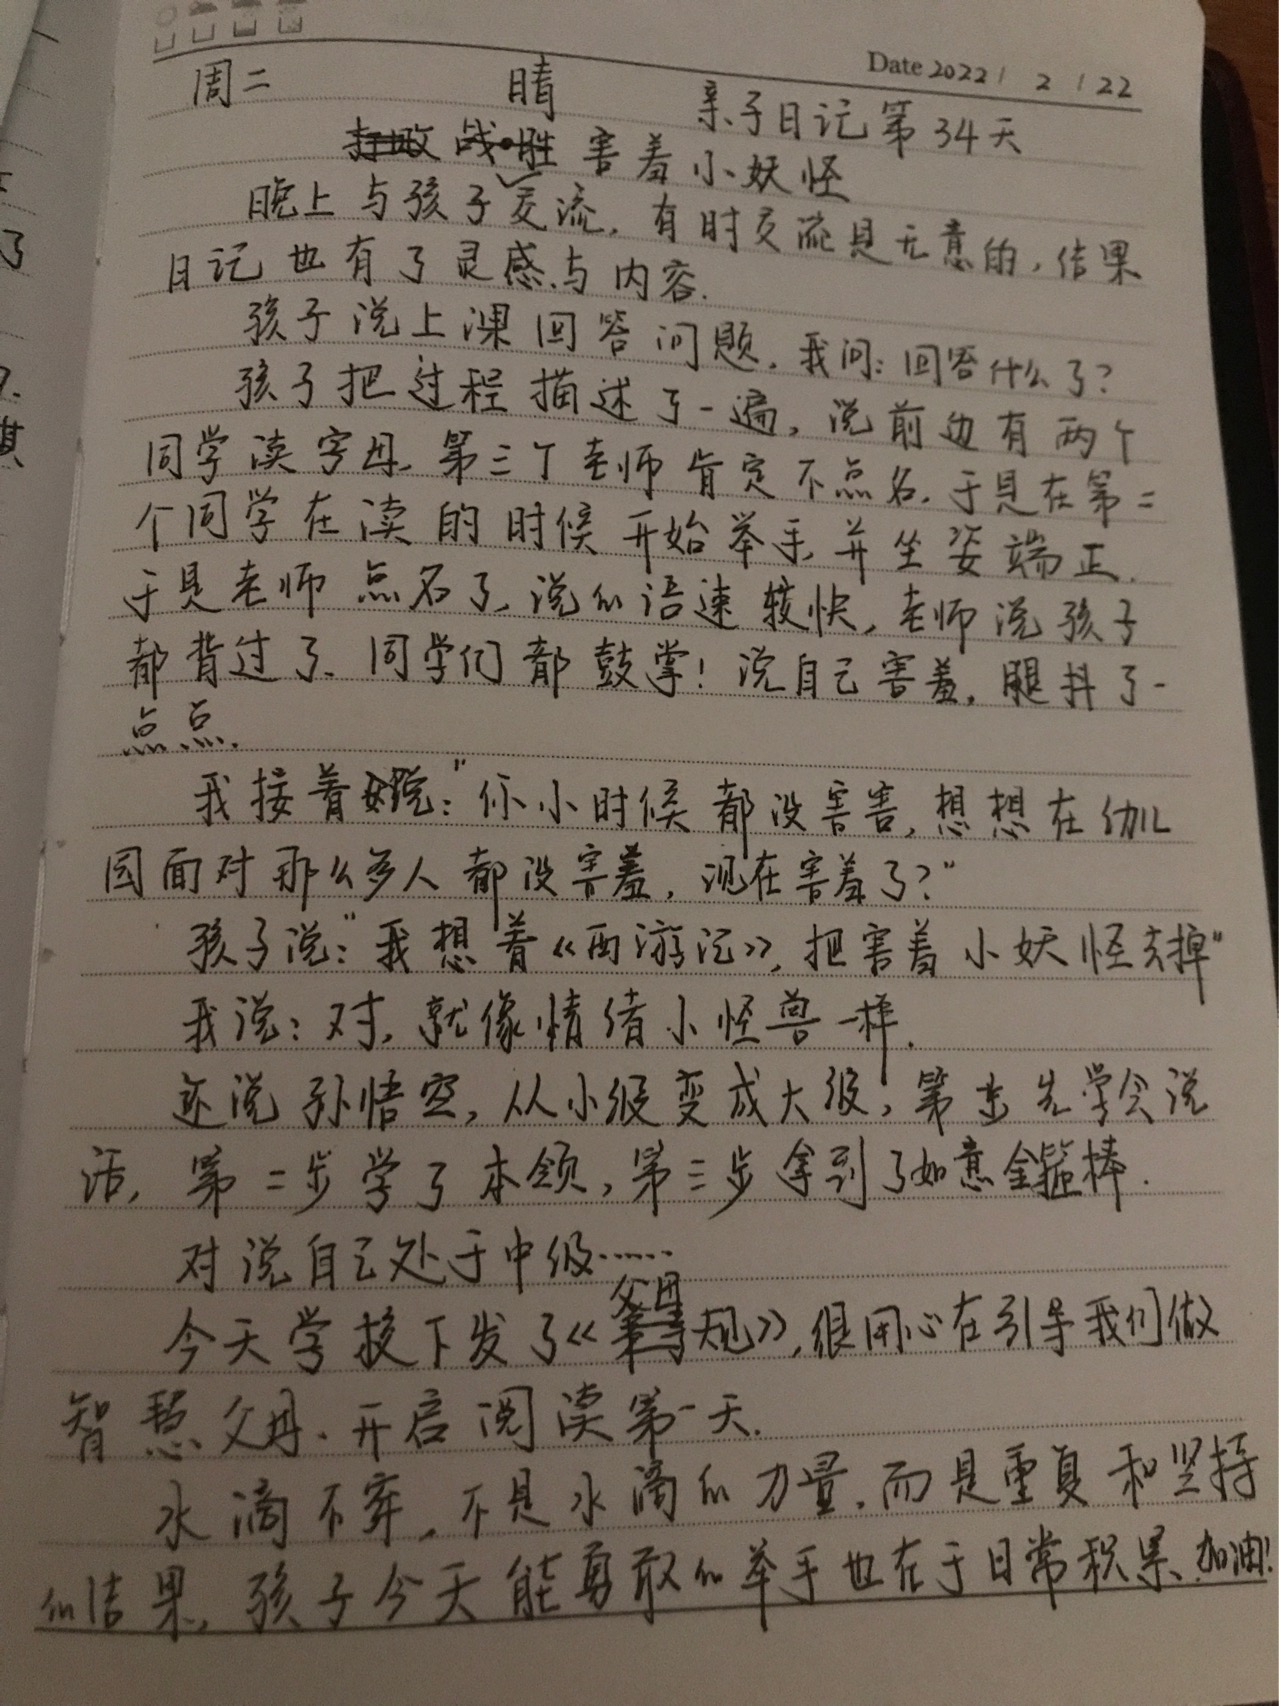 Date 2022 / 2 / 22
周二 晴 亲子日记第34天
战胜害羞小妖怪
晚上与孩子交流，有时交流是无意的，结果
日记也有了灵感与内容.
孩子说上课回答问题，我问：回答什么了？
孩子把过程描述了一遍，说前边有两个
同学读字母，第三个老师肯定不点名，于是在第二
个同学在读的时候开始举手，并坐姿端正.
于是老师点名了，说的语速较快，老师说孩子
都背过了、同学们都鼓掌！说自己害羞，腿抖了一
点点.
我接着说：“你小时候都没害害，想想在幼儿
园面对那么多人都没害羞，现在害羞了？”
孩子说：“我想着《西游记》，把害羞小妖怪去掉”
我说：对，就像情绪小怪兽一样.
还说孙悟空，从小级变成大级，第一步先学会说
话，第二步学了本领，第三步拿到了如意金箍棒.
对说自己处于中级……
今天学校下发了《父母规》，很用心在引导我们做
智慧父母.开启阅读第一天.
水滴石穿，不是水滴的力量，而是重复和坚持
的结果，孩子今天能勇敢的举手也在于日常积累、加油!